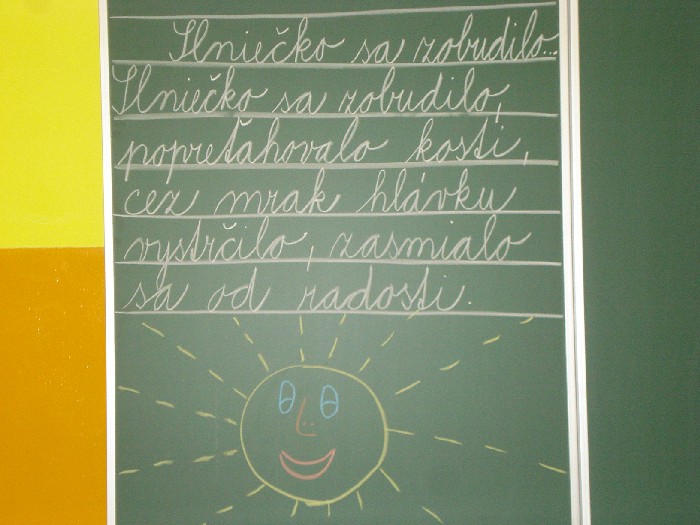 Slniečko sa zobudilo...
Slniečko sa zobudilo,
popreťahovalo kosti,
cez mrak hlávku
vystrčilo, zasmialo
sa od radosti.